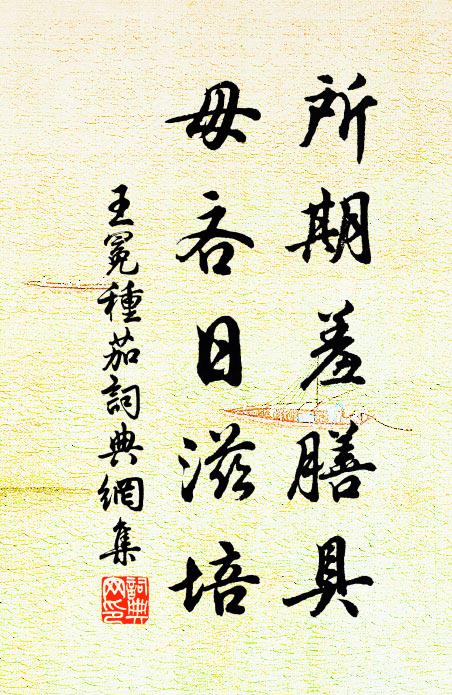 所期羞膳具
毋吝日滋培
王冕種茄詞典網集
詞典
网印